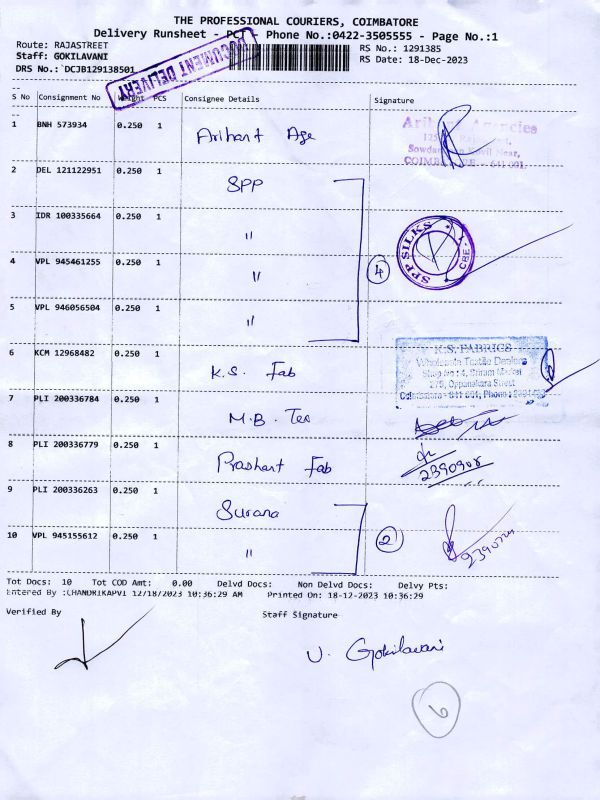 THE PROFESSIONAL COURIERS, COIMBATORE
Delivery Runsheet - PCT - Phone No.:0422-3505555 - Page No.:1
Route: RAJASTREET
Staff: GOKILAVANI
DRS No.: DCJB129138501
RS No.: 1291385
RS Date: 18-Dec-2023
DOCUMENT DELIVERY
S No Consignment No Weight PCS Consignee Details Signature
1 BNH 573934 0.250 1 Arihant Age
Arihant Agencies
COIMBATORE - 641 001.
2 DEL 121122951 0.250 1 SPP
3 IDR 100335664 0.250 1 "
SPP SILKS CBE-1
4 VPL 945461255 0.250 1 " 4
5 VPL 946056504 0.250 1 "
6 KCM 12968482 0.250 1 K.S. Fab
K.S. FABRICS
Wholesale Textile Dealers
Shop No : 4, Sriram Market
275, Oppanakara Street
Coimbatore - 641 001, Phone :
7 PLI 200336784 0.250 1 M.B. Tex
8 PLI 200336779 0.250 1 Prashant Fab
2390908
9 PLI 200336263 0.250 1 Surana
10 VPL 945155612 0.250 1 " 2
Tot Docs: 10 Tot COD Amt: 0.00 Delvd Docs: Non Delvd Docs: Delvy Pts:
Entered By :CHANDRIKAPVI 12/18/2023 10:36:29 AM Printed On: 18-12-2023 10:36:29
Verified By Staff Signature
V. Gokilavani
6